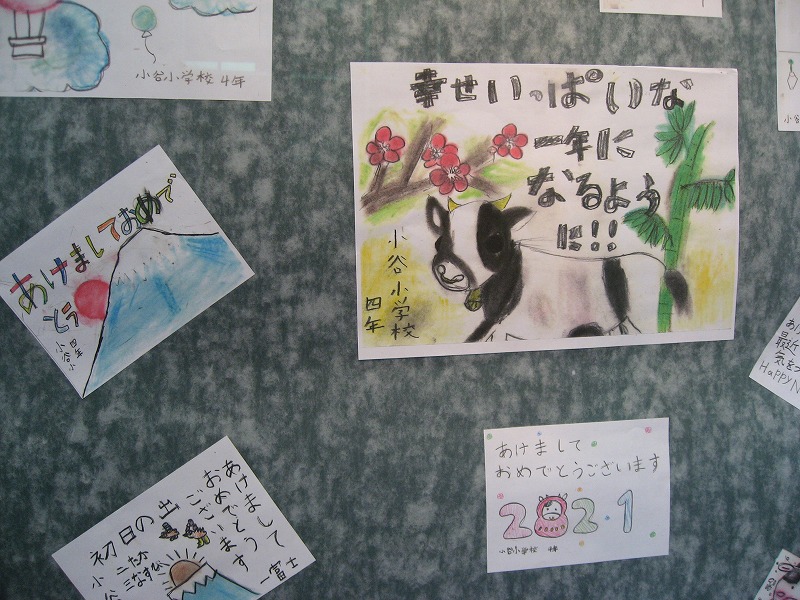 小谷小学校 4年
幸せいっぱいな
一年に
なるよう
に!!
小谷小学校
四年
あけましておめで
とう
四年
小谷小
あけまして
おめでとう
ございます
一富士
二たか
三なすび
初日の出
小谷
あけまして
おめでとうございます
2021
小谷小学校 4年
あけ
最近
気をつ
Happy N
小谷